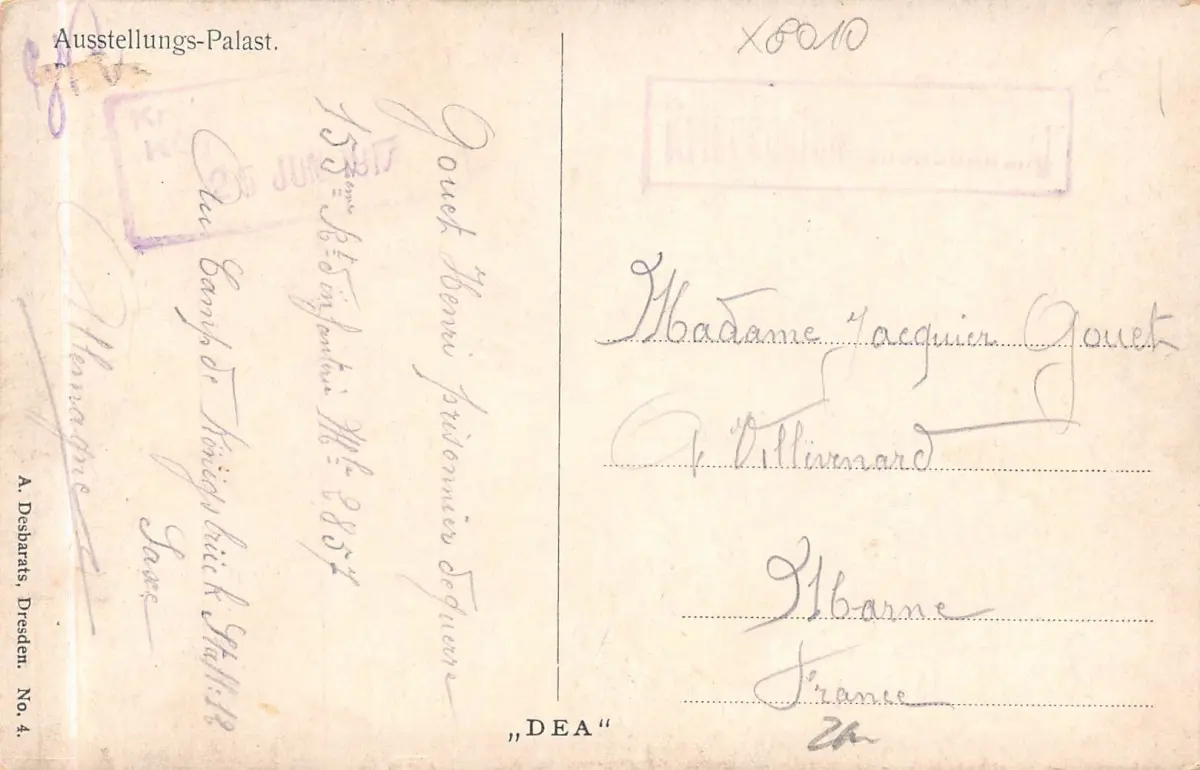 Ausstellungs-Palast.
Gouet Henri prisonnier de guerre
155eme Rt d'infanterie Mle 2857
Au Camp de Königsbrück Stall: 18
Saxe
Allemagne
A. Desbarats, Dresden. No. 4.
„DEA“
X8010
Madame Jacquier Gouet
A Villevenard
Marne
France